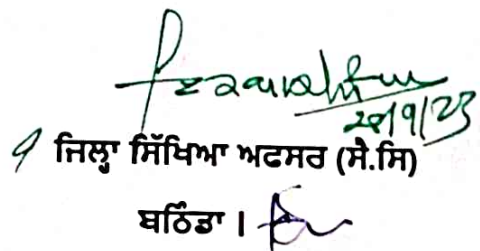 28/9/23
ਜਿਲ੍ਹਾ ਸਿੱਖਿਆ ਅਫਸਰ (ਸੈ.ਸਿ)
ਬਠਿੰਡਾ ।